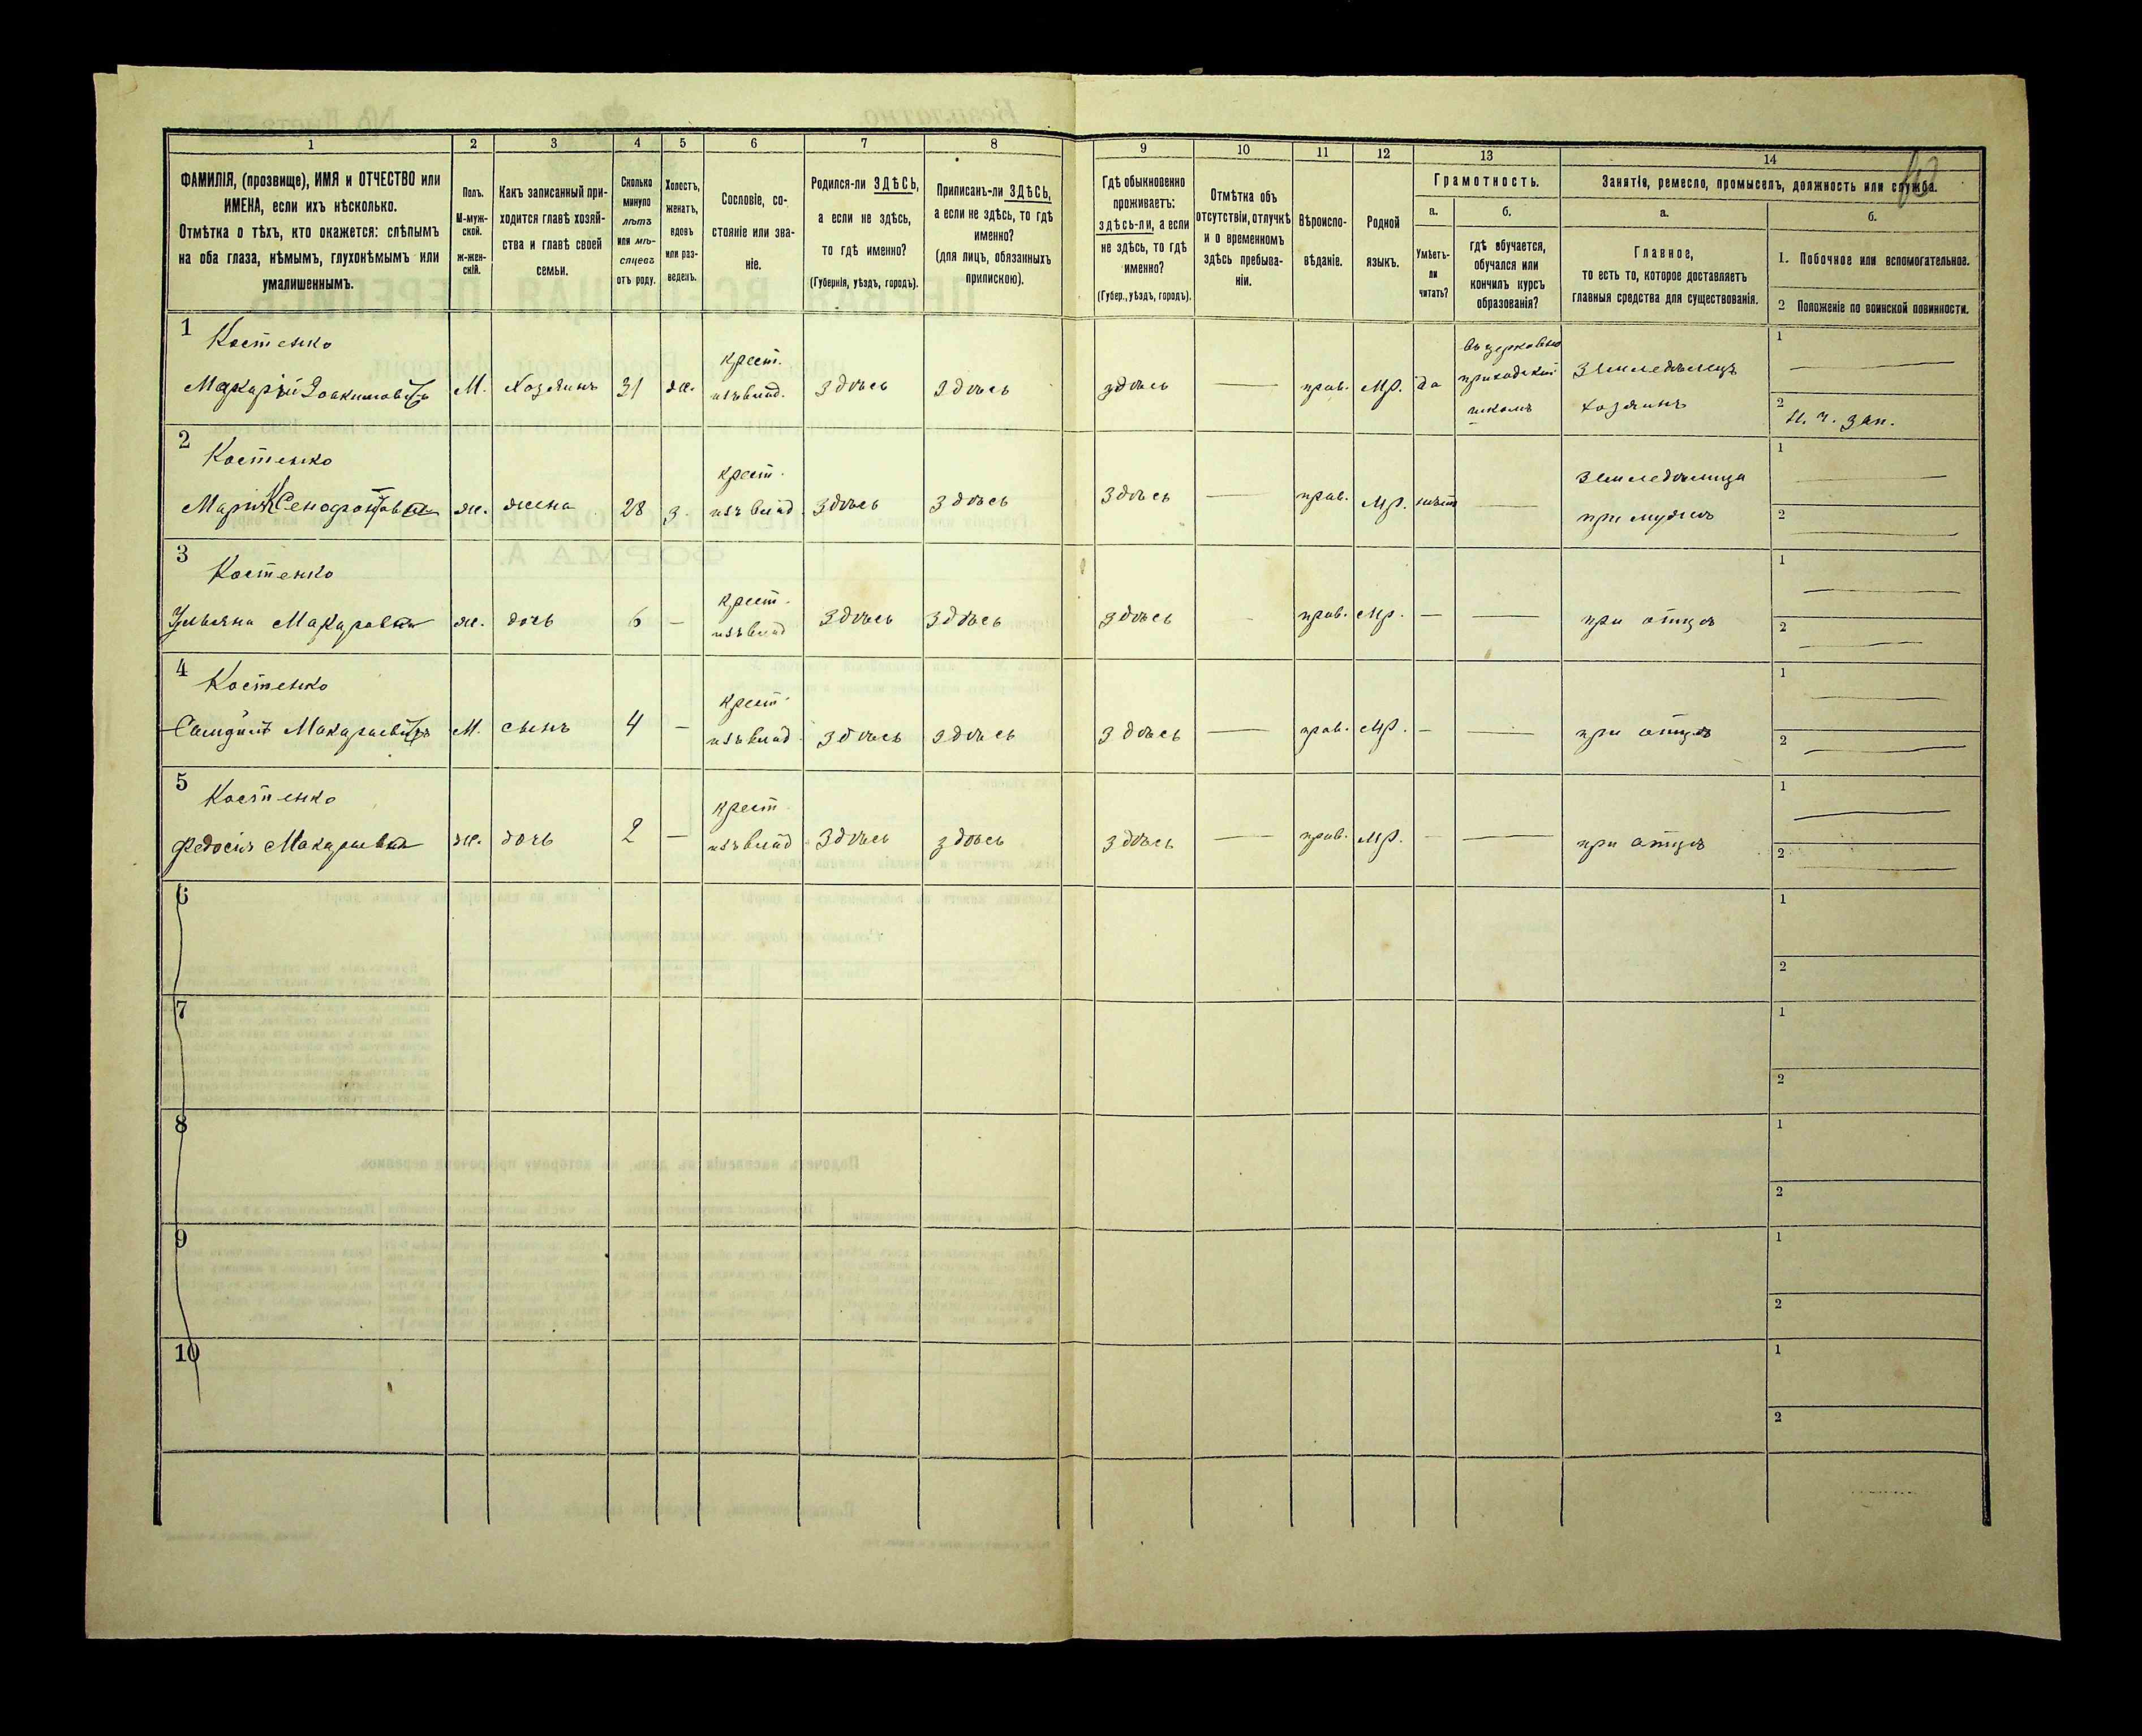 1
2
3
4
5
6
7
8
9
10
11
12
13
14
ФАМИЛІЯ, (прозвище), ИМЯ и ОТЧЕСТВО или
ИМЕНА, если ихъ нѣсколько.
Отмѣтка о тѣхъ, кто окажется: слѣпымъ
на оба глаза, нѣмымъ, глухонѣмымъ или
умалишеннымъ.
Полъ.
М-муж-
ской.
ж-жен-
скій.
Какъ записанный при-
ходится главѣ хозяй-
ства и главѣ своей
семьи.
Сколько
минуло
лѣтъ
или мѣ-
сяцевъ
отъ роду.
Холостъ,
женатъ,
вдовъ
или раз-
веденъ.
Сословіе, со-
стояніе или зва-
ніе.
Родился-ли ЗДѢСЬ,
а если не здѣсь,
то гдѣ именно?
(Губернія, уѣздъ, городъ).
Приписанъ-ли ЗДѢСЬ,
а если не здѣсь, то гдѣ
именно?
(для лицъ, обязанныхъ
припискою).
Гдѣ обыкновенно
проживаетъ:
здѣсь-ли, а если
не здѣсь, то гдѣ
именно?
(Губер., уѣздъ, городъ).
Отмѣтка объ
отсутствіи, отлучкѣ
и о временномъ
здѣсь пребыва-
ніи.
Вѣроиспо-
вѣданіе.
Родной
языкъ.
Грамотность.
а.
Умѣетъ-
ли
читать?
б.
гдѣ обучается,
обучался или
кончилъ курсъ
образованія?
Занятіе, ремесло, промыселъ, должность или служба.
а.
Главное,
то есть то, которое доставляетъ
главныя средства для существованія.
б.
1. Побочное или вспомогательное.
2 Положеніе по воинской повинности.
1
Костенко
Макарій Іоакимовичъ
М.
Хозяинъ
31
ж.
крест.
изъ влад.
здѣсь
здѣсь
здѣсь
прав.
Мр.
да
приходской
школѣ
Земледѣлецъ
хозяинъ
1
2
2
Костенко
Марія Ксенофонтовна
ж.
жена
28
з.
крест.
изъ влад.
здѣсь
здѣсь
здѣсь
прав.
Мр.
нѣтъ
земледѣлица
при мужѣ
1
2
3
Костенко
Ульяна Макаровна
ж.
дочь
6
крест.
изъ влад
здѣсь
здѣсь
здѣсь
прав.
Мр.
при отцѣ
1
2
4
Костенко
М.
сынъ
4
крест.
изъ влад.
здѣсь
здѣсь
здѣсь
прав.
Мр.
при отцѣ
1
2
5
Костенко
Федосія Макаровна
ж.
дочь
2
крест.
изъ влад.
здѣсь
здѣсь
здѣсь
прав.
Мр.
при отцѣ
1
2
6
1
2
7
1
2
8
1
2
9
1
2
10
1
2